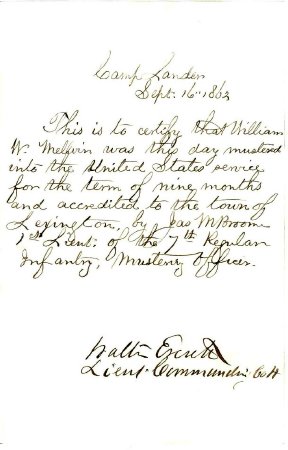 Camp Lander
Sept. 16" 1862
This is to certify that William
W. Melvin was this day mustered
into the United States service
for the term of nine months
and accredited to the town of
Lexington, by Jas M Broome
1st Lieut: of the 7th Regular
Infantry, Mustering Officer.
Lieut. Commanding Co H